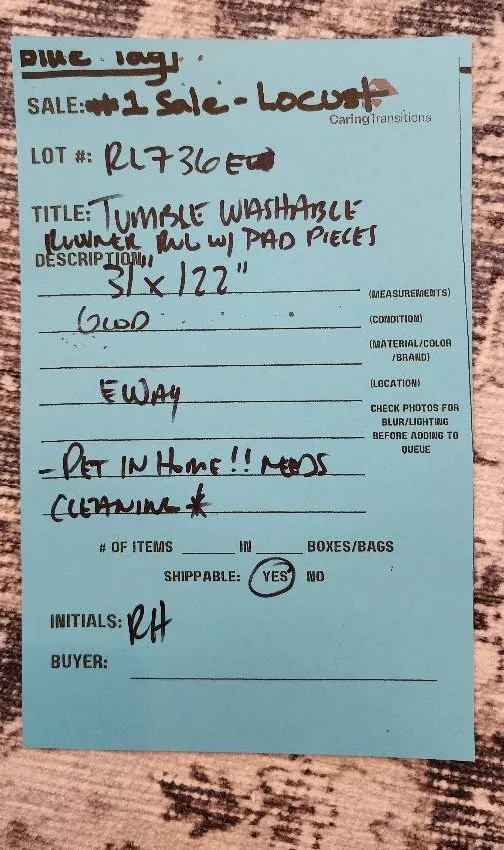 Blue Tags
SALE: #1 Sale - Locust
CaringTransitions
LOT #: RL736EW
TITLE: TUMBLE WASHABLE
RUNNER RUG W/ PAD PIECES
DESCRIPTION:
31" x 122"
(MEASUREMENTS)
GOOD
(CONDITION)
(MATERIAL/COLOR
/BRAND)
EWAY
(LOCATION)
CHECK PHOTOS FOR
BLUR/LIGHTING
BEFORE ADDING TO
QUEUE
- PET IN HOME!! NEEDS
CLEANING *
# OF ITEMS ____ IN ____ BOXES/BAGS
SHIPPABLE: YES NO
INITIALS: RH
BUYER: